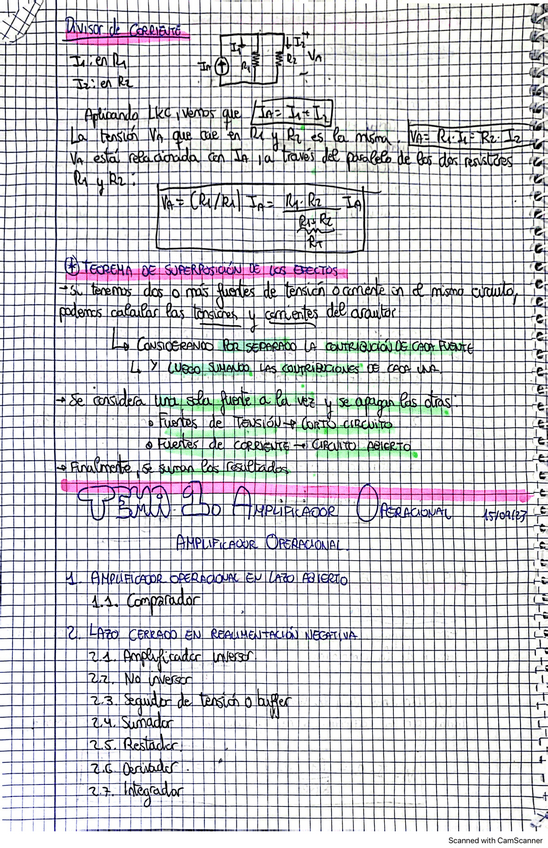 Divisor de CORRIENTE
I1: en R1
I2: en R2
IA I1 R1 I2 R2 VA
Aplicando LKC, vemos que IA = I1 + I2
La tensión VA que cae en R1 y R2 es la misma. VA = R1·I1 = R2·I2
VA está relacionada con IA, a través del paralelo de los dos resistores
R1 y R2:
VA = (R1//R1) IA = R1·R2 / R1+R2 IA
RT
* TEOREMA DE SUPERPOSICIÓN DE LOS EFECTOS
→ Si tenemos dos o más fuentes de tensión o corriente en el mismo circuito,
podemos calcular las tensiones y corrientes del circuito
↳ CONSIDERANDO POR SEPARADO LA CONTRIBUCIÓN DE CADA FUENTE
↳ Y LUEGO SUMANDO LAS CONTRIBUCIONES DE CADA UNA.
→ Se considera una sola fuente a la vez y se apagan las otras:
• Fuentes de TENSIÓN → CORTO CIRCUITO
• Fuentes de CORRIENTE → CIRCUITO ABIERTO
→ Finalmente, se suman los resultados
TEMA 2. AMPLIFICADOR OPERACIONAL
AMPLIFICADOR OPERACIONAL.
1. AMPLIFICADOR OPERACIONAL EN LAZO ABIERTO
1.1. Comparador
2. LAZO CERRADO EN REALIMENTACIÓN NEGATIVA
2.1. Amplificador inversor
2.2. No inversor
2.3. Seguidor de tensión o buffer
2.4. Sumador
2.5. Restador
2.6. Derivador
2.7. Integrador
Scanned with CamScanner